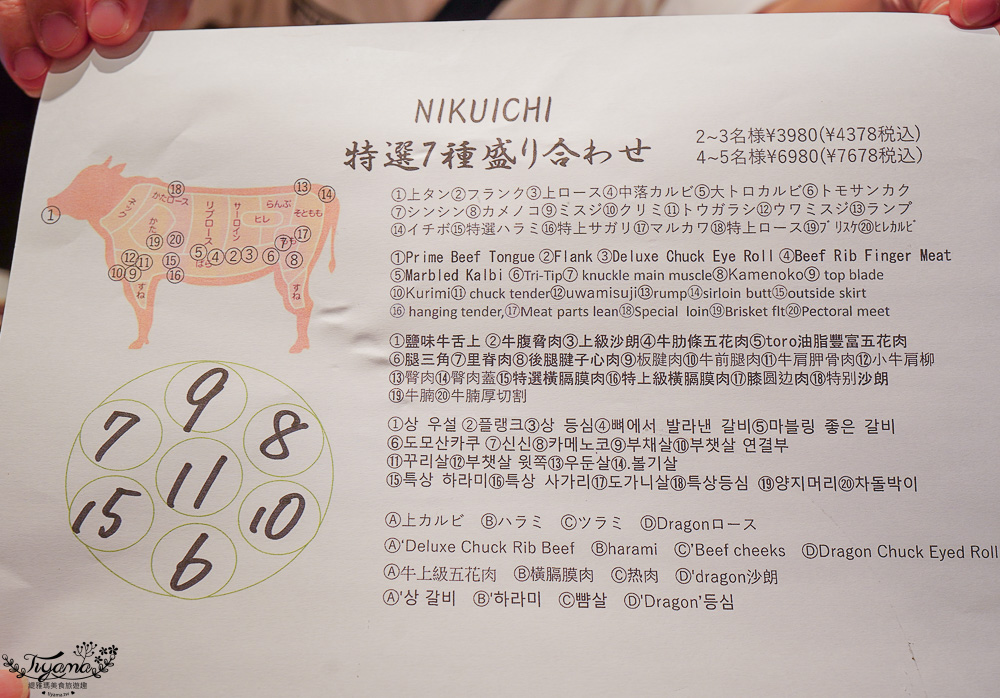 NIKUICHI
特選7種盛り合わせ
2~3名様¥3980(¥4378税込)
4~5名様¥6980(¥7678税込)
①上タン②フランク③上ロース④中落カルビ⑤大トロカルビ⑥トモサンカク
⑦シンシン⑧カメノコ⑨ミスジ⑩クリミ⑪トウガラシ⑫ウワミスジ⑬ランプ
⑭イチボ⑮特選ハラミ⑯特上サガリ⑰マルカワ⑱特上ロース⑲ブリスケ⑳ヒレカルビ
①Prime Beef Tongue ②Flank ③Deluxe Chuck Eye Roll ④Beef Rib Finger Meat
⑤Marbled Kalbi ⑥Tri-Tip⑦ knuckle main muscle⑧Kamenoko⑨ top blade
⑩Kurimi⑪ chuck tender⑫uwamisuji⑬rump⑭sirloin butt⑮outside skirt
⑯ hanging tender,⑰Meat parts lean⑱Special loin⑲Brisket flt⑳Pectoral meet
①鹽味牛舌上 ②牛腹脅肉③上級沙朗④牛肋條五花肉⑤toro油脂豐富五花肉
⑥腿三角⑦里脊肉⑧後腿腱子心肉⑨板腱肉⑩牛前腿肉⑪牛肩胛骨肉⑫小牛肩柳
⑬臀肉⑭臀肉蓋⑮特選橫膈膜肉⑯特上級橫膈膜肉⑰膝圓边肉⑱特別沙朗
⑲牛腩⑳牛腩厚切割
①상 우설 ②플랭크③상 등심④뼈에서 발라낸 갈비⑤마블링 좋은 갈비
⑥도모산카쿠 ⑦신신⑧카메노코⑨부채살⑩부챗살 연결부
⑪꾸리살⑫부챗살 윗쪽⑬우둔살⑭.볼기살
⑮특상 하라미⑯특상 사가리⑰도가니살⑱특상등심 ⑲양지머리⑳차돌박이
Ⓐ上カルビ Ⓑハラミ Ⓒツラミ ⒹDragonロース
Ⓐ‘Deluxe Chuck Rib Beef Ⓑharami Ⓒ’Beef cheeks ⒹDragon Chuck Eyed Roll
Ⓐ牛上級五花肉 Ⓑ橫膈膜肉 Ⓒ热肉 Ⓓ'dragon沙朗
Ⓐ'상 갈비 Ⓑ'하라미 Ⓒ뺨살 Ⓓ'Dragon’등심
①
ネック
かたロース
⑱
かた
⑲
⑳
リブロース
サーロイン
らんぷ
ヒレ
そともも
⑬
⑭
⑰
もも
⑦
⑫
⑪
⑮
⑤
④
②
③
⑥
⑧
ばら
⑩
⑨
⑯
すね
すね
9
7
8
11
15
10
6
Tiyama
緹雅瑪美食旅遊趣
tiyama.tw